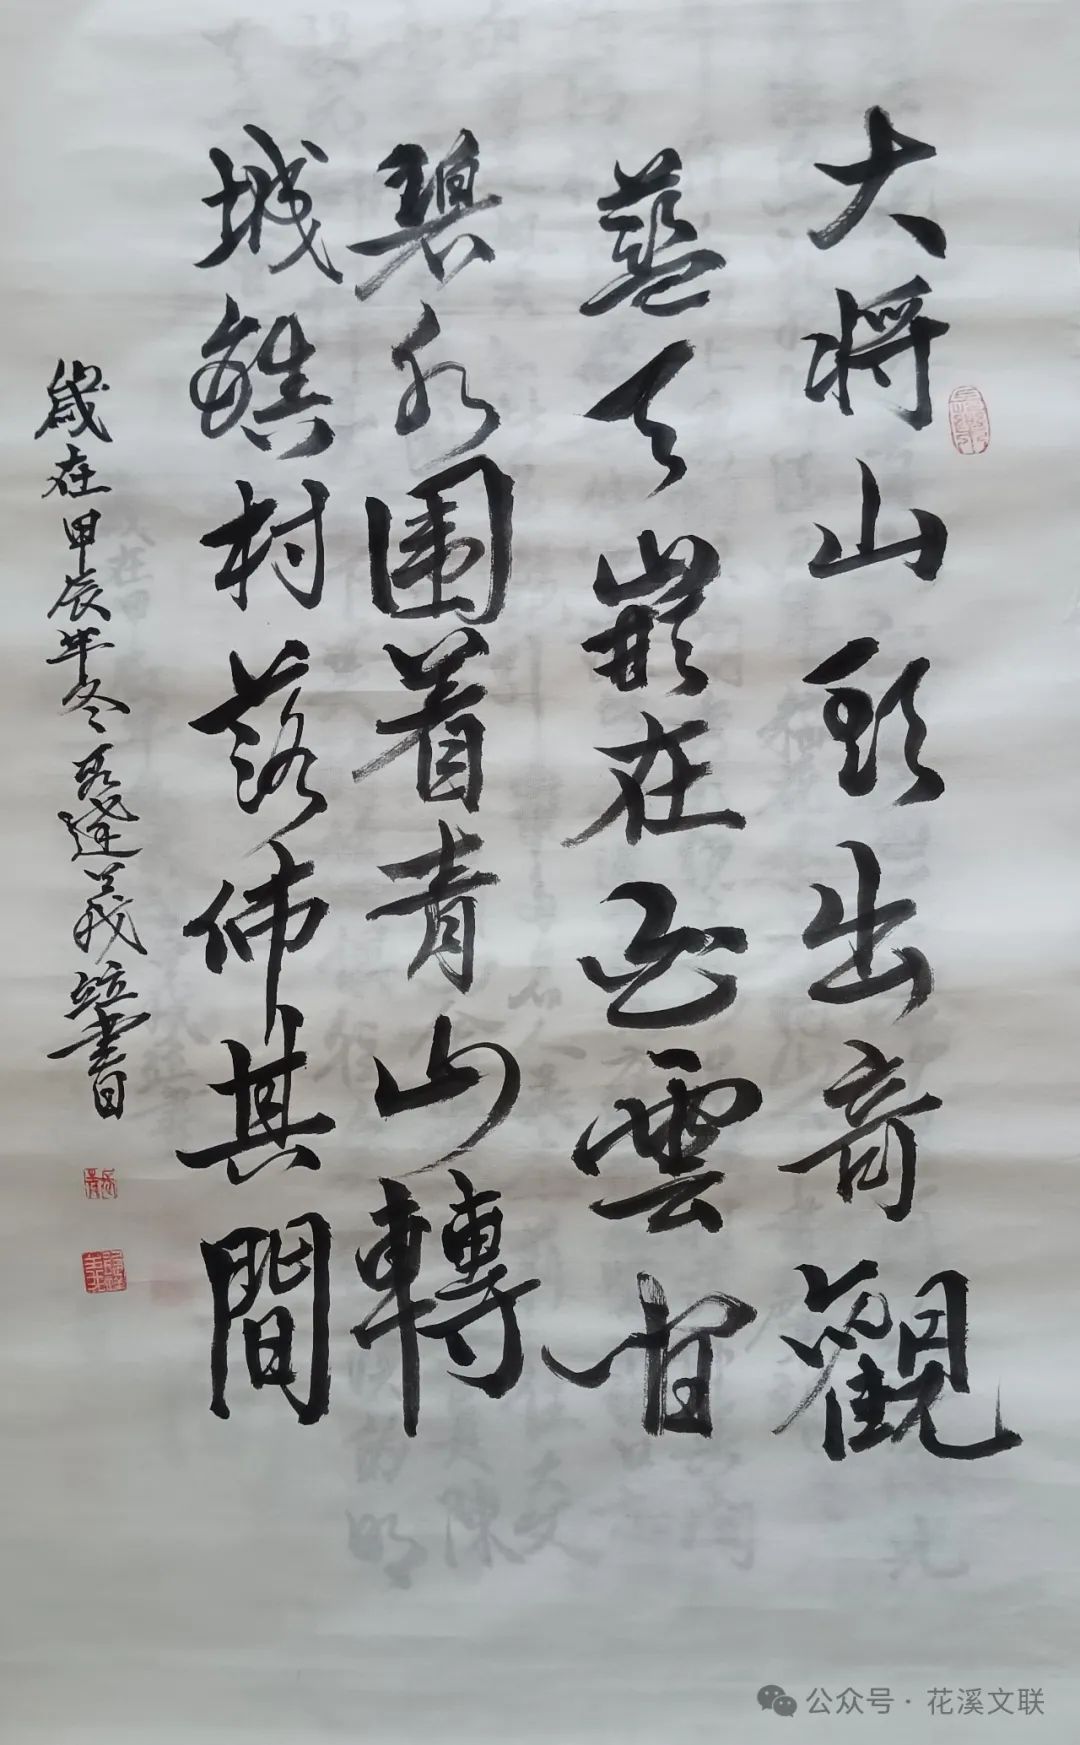 大将山頭出奇觀
藍天嵌在白雲間
碧水围着青山轉
城鎮村落佈其間
歲在甲辰年冬 達義 書
公众号 · 花溪文联